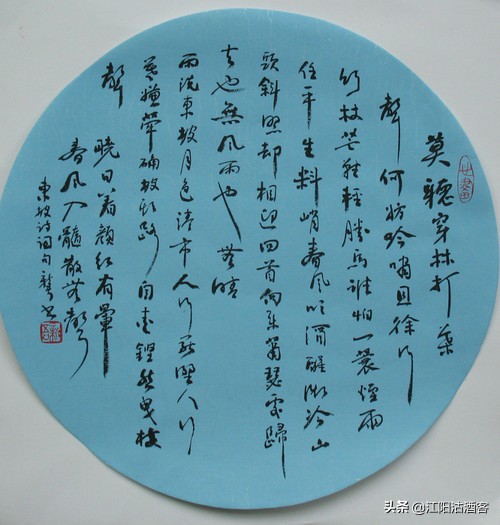 莫聽穿林打葉
聲何妨吟嘯且徐行
竹杖芒鞋輕勝馬誰怕一蓑煙雨
任平生料峭春風吹酒醒微冷山
頭斜照却相迎回首向來蕭瑟處歸
去也無風雨也無晴
雨洗東坡月色清市人行盡野人行
莫嫌犖确坡頭路自愛鏗然曳杖
聲
曉日着顏紅有暈
春風入髓散無聲
東坡詩詞句
头条 @江阳沽酒客